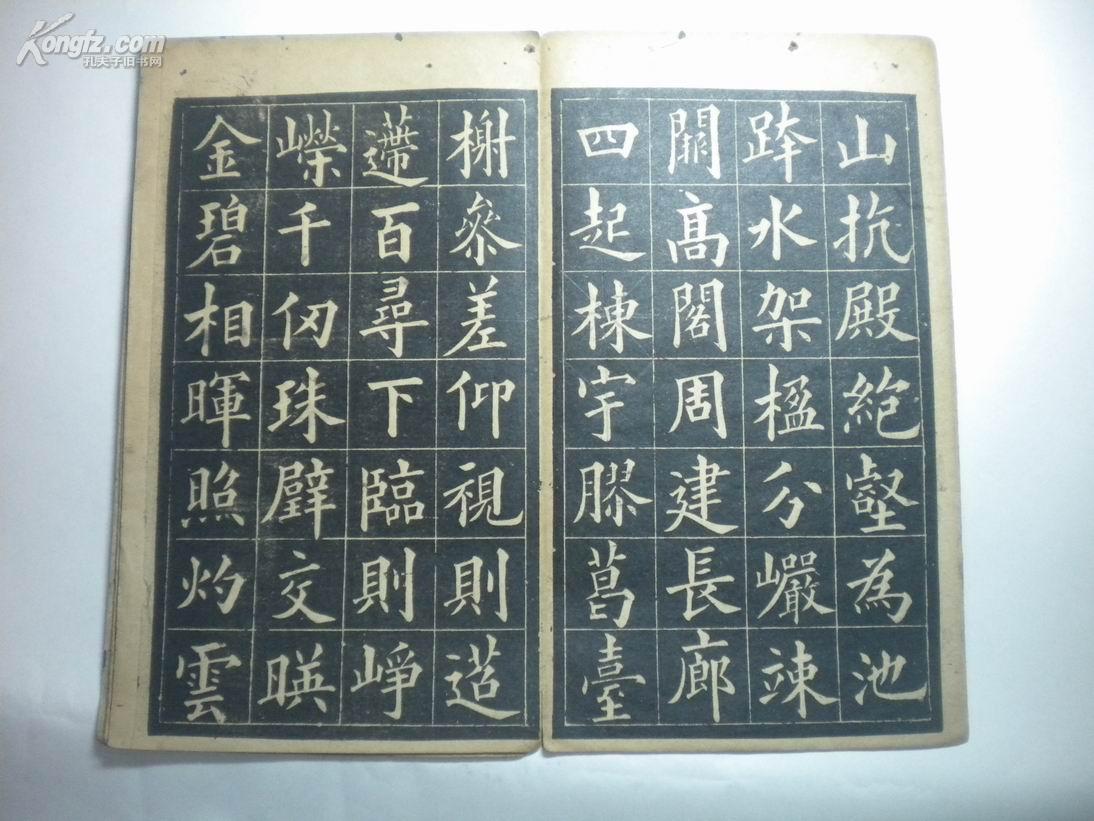 山抗殿絶壑為池
跨水架楹分巖竦
闕髙閣周建長廊
四起棟宇膠葛臺
榭叅差仰視則迢
遰百尋下臨則崢
嶸千仞珠璧交暎
金碧相暉照灼雲
Kongfz.com
孔夫子旧书网